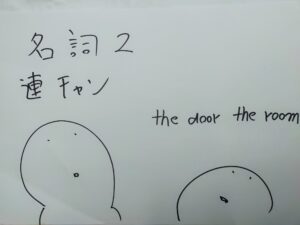 名詞2
連チャン
the door the room